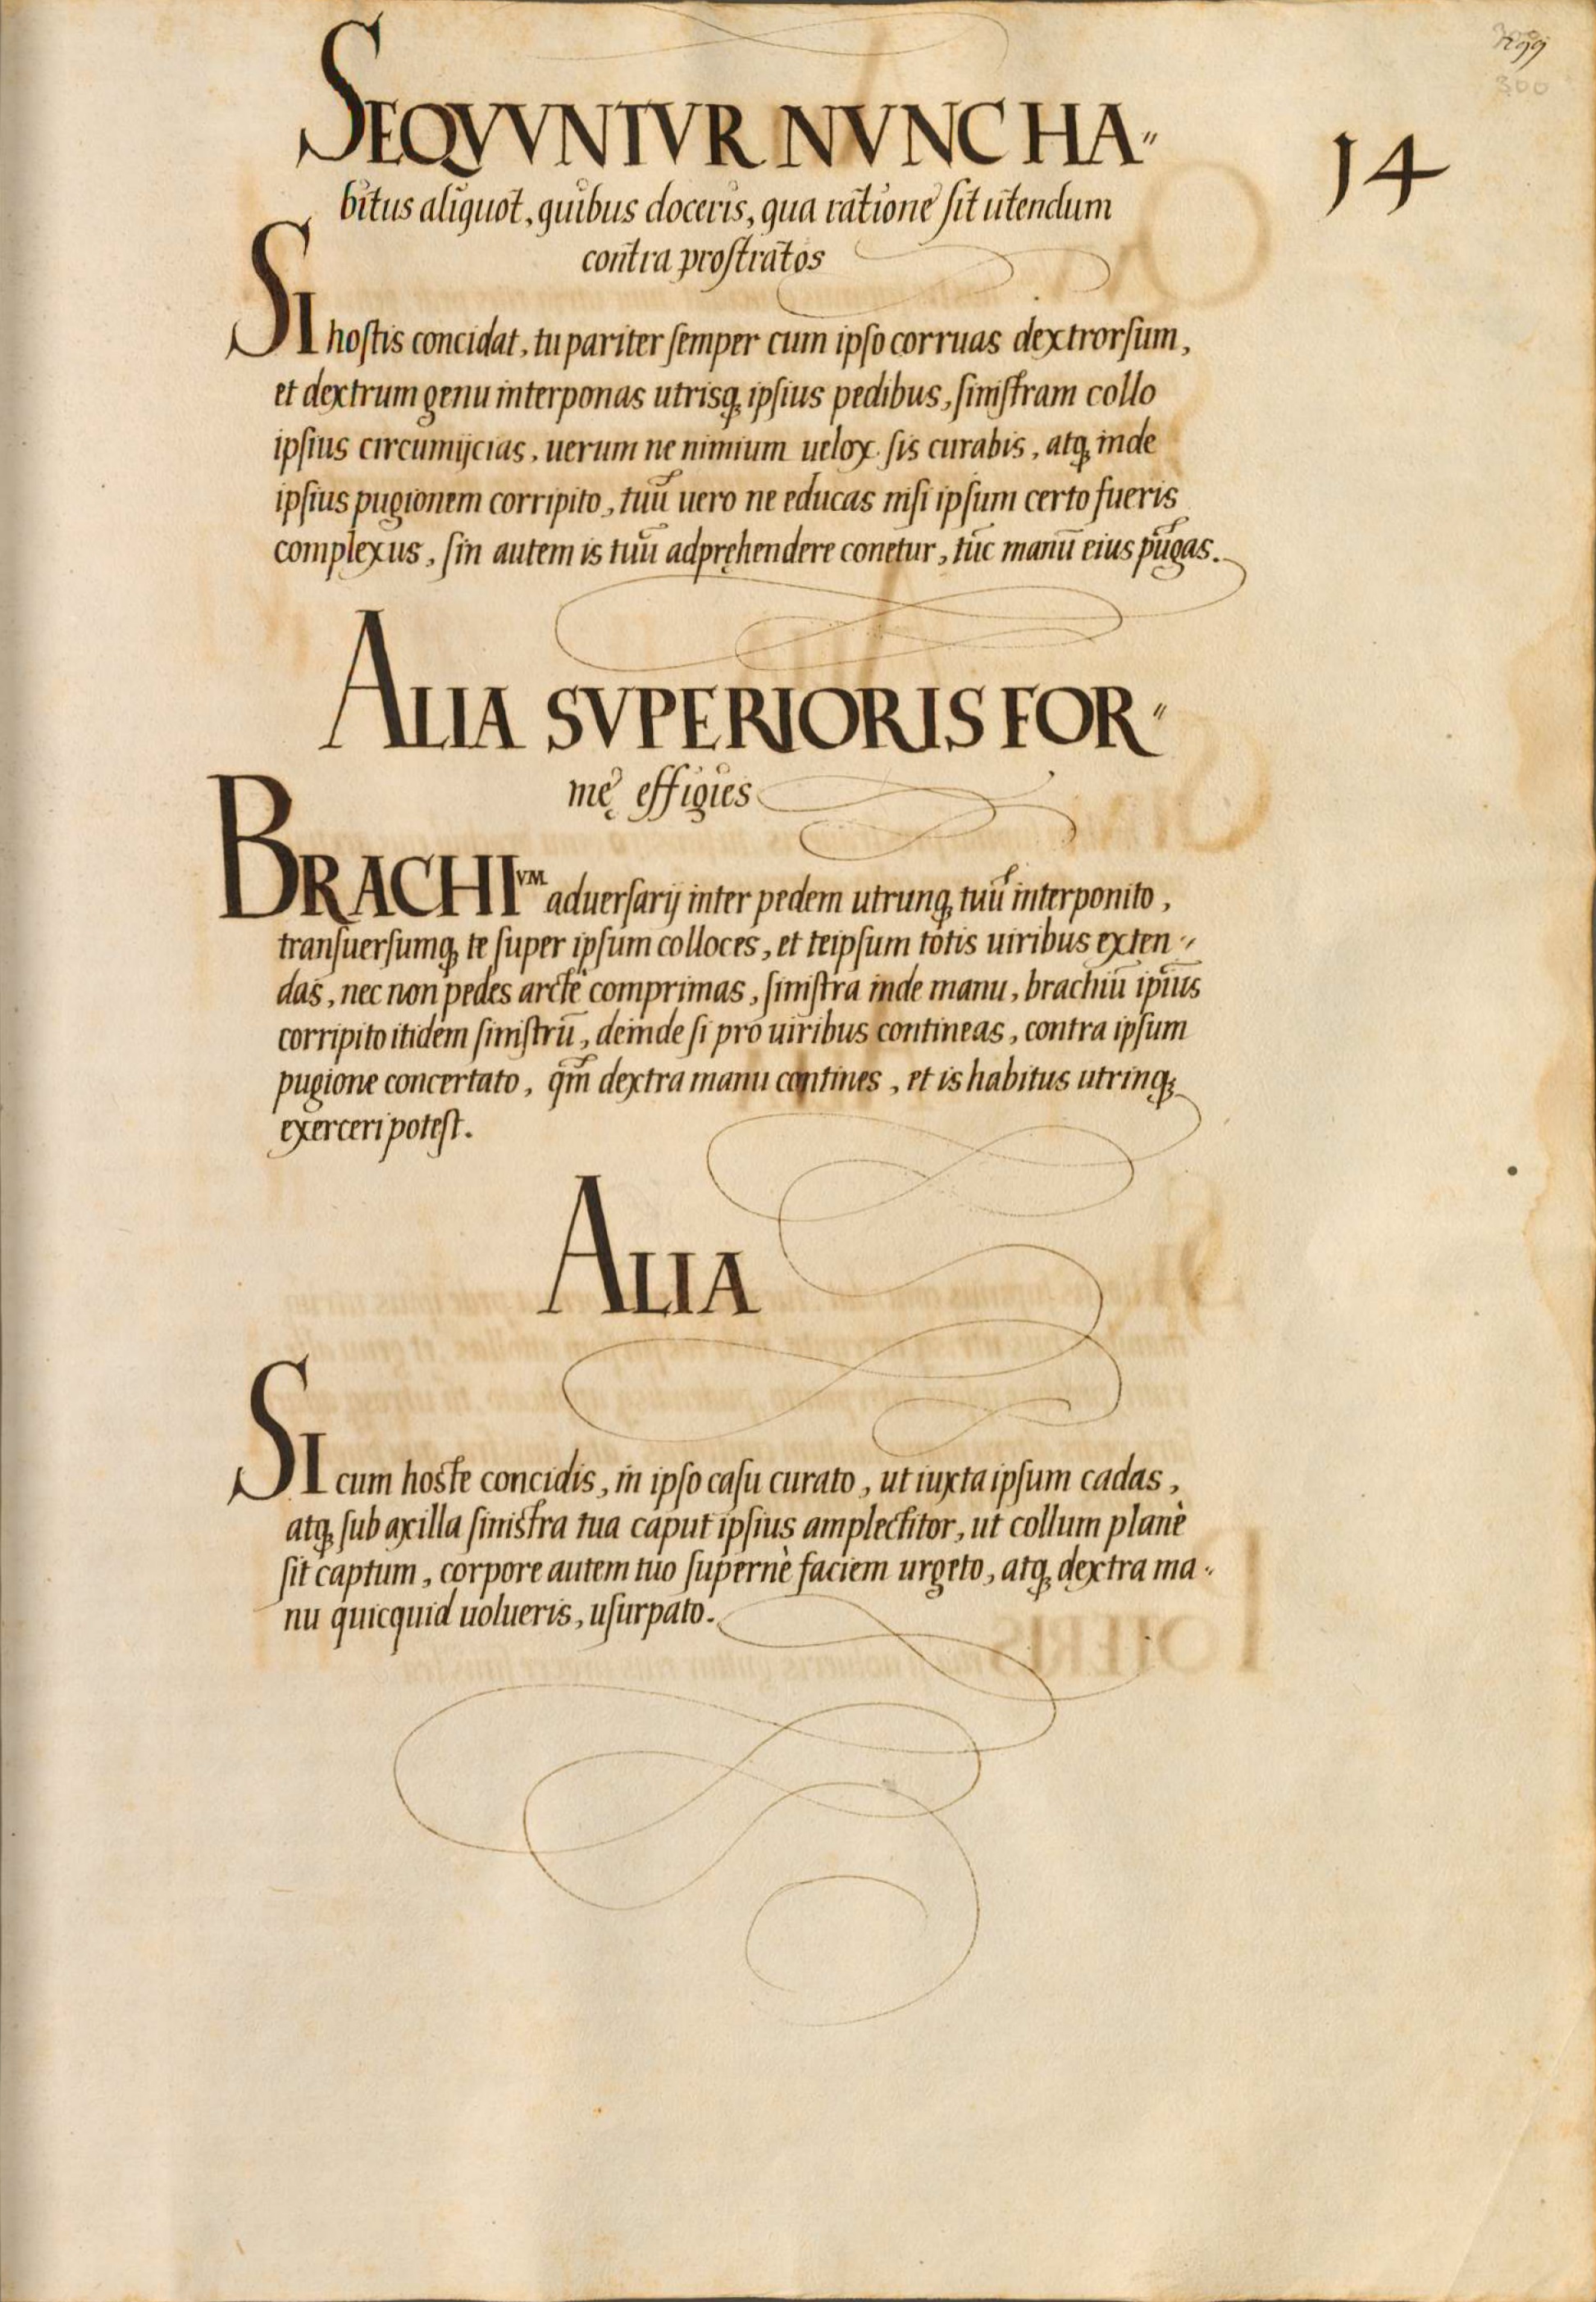 299
300
14
SEQVVNTVR NVNC HA〃
bitus aliquot, quibus doceris, qua ratione sit utendum
contra prostratos
SI hostis concidat, tu pariter semper cum ipso corruas dextrorsum,
et dextrum genu interponas utrisq; ipsius pedibus, sinistram collo
ipsius circumijcias, uerum ne nimium uelox sis curabis, atq; inde
ipsius pugionem corripito, tuū uero ne educas nisi ipsum certo fueris
complexus, sin autem is tuū adpręhendere conetur, tūc manū eius pūgas.
ALIA SVPERIORIS FOR〃
mę effigies
BRACHIVM aduersarij inter pedem utrunq; tuū interponito,
transuersumq; te super ipsum colloces, et teipsum totis uiribus exten〃
das, nec non pedes arctè comprimas, sinistra inde manu, brachiū ipīus
corripito itidem sinistrū, deinde si pro uiribus contineas, contra ipsum
pugione concertato, qm̄ dextra manu contines, et is habitus utrinq;
exerceri potest.
ALIA
SI cum hoste concidis, in ipso casu curato, ut iuxta ipsum cadas,
atq; sub axilla sinistra tua caput ipsius amplectitor, ut collum planè
sit captum, corpore autem tuo supernè faciem urgeto, atq; dextra ma〃
nu quicquid uolueris, usurpato.